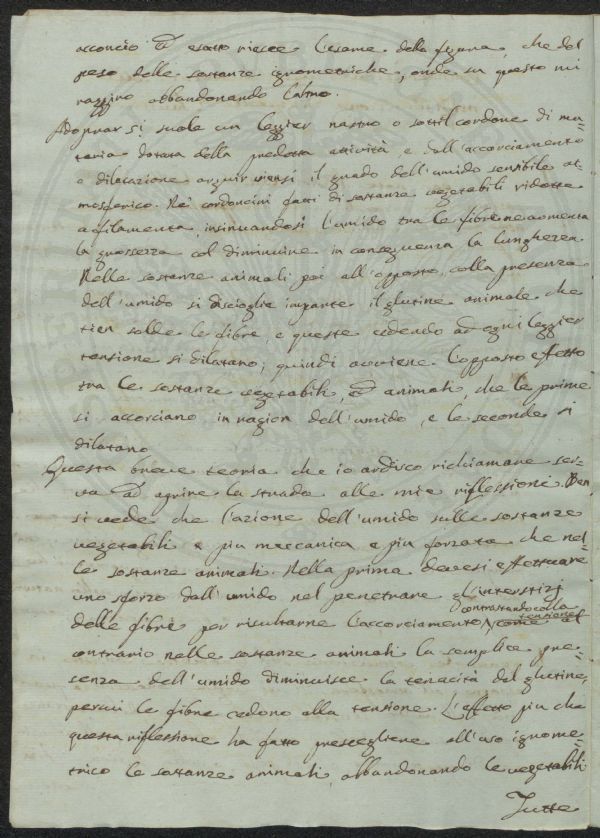 acconcio ed esatto riesce l'esame della figura, che del
peso delle sostanze igrometriche, onde su questo mi
raggiro abbandonando l'altro.
Adoprar si suole un leggier nastro o sottil cordone di ma=
teria dotata della predetta attività e dall'accorciamento
o dilatazione arguir viensi il grado dell'umido sensibile at=
mosferico. Ne' cordoncini fatti di sostanze vegetabili ridotte
a filamenta, insinuandosi l'umido tra le fibre ne aomenta
la grossezza col diminuirne in conseguenza la lunghezza.
Nelle sostanze animali poi all'opposto, colla presenza
dell'umido si discioglie in parte il glutine animale che
tien salde le fibre, e queste cedendo ad ogni leggier
tensione si dilatano; quindi avviene l'opposto effetto
tra le sostanze vegetabili, ed animali, che le prime
si accorciano in ragion dell'umido, e le seconde si
dilatano.
Questa breve teoria che io ardisco richiamare ser=
va ad aprire la strada alle mie riflessioni. Ben
si vede che l'azione dell'umido sulle sostanze
vegetabili è più meccanica e più forzata che nel=
le sostanze animali. Nella prima devesi effettuare
uno sforzo dall'umido nel penetrare gl'interstizj
delle fibre per risultarne l'accorciamento contrastando colla tensione, come al
contrario nelle sostanze animali la semplice pre=
senza dell'umido diminuisce la tenacità del glutine,
per cui le fibre cedono alla tensione. L'effetto più che
questa riflessione ha fatto prescegliere all'uso igrome=
trico le sostanze animali abbandonando le vegetabili.
Tutte